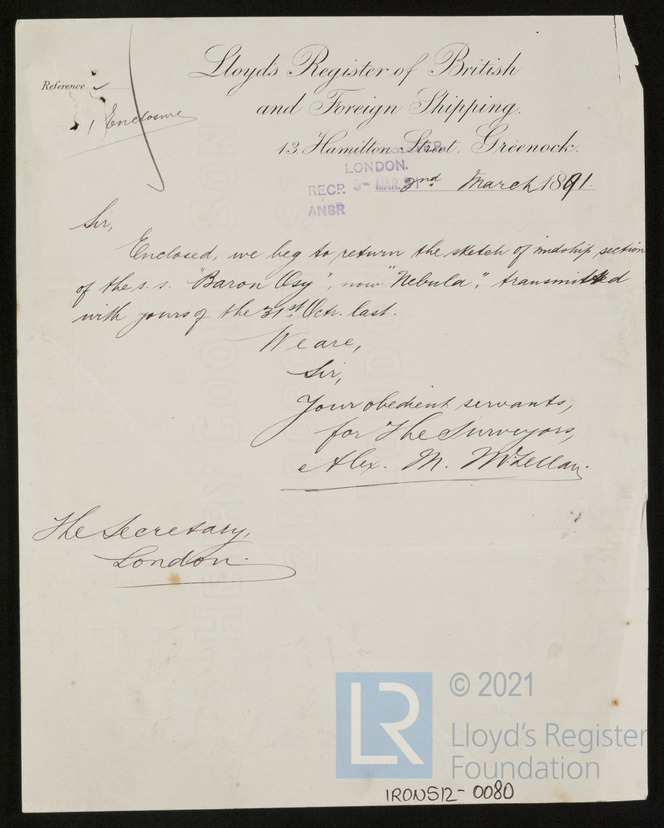 Lloyds Register of British
and Foreign Shipping.
13, Hamilton Street, Greenock.
Reference
1 Enclosure
LONDON.
RECD. 3- MAR. 91
ANSR
2nd March 1891.
Sir,
Enclosed, we beg to return the sketch of midship section
of the s.s. "Baron Osy", now "Nebula", transmitted
with yours of the 31st Octr. last.
We are,
Sir,
Your obedient servants,
for The Surveyors,
Alex. M. McLellan.
The Secretary,
London.
LR
© 2021
Lloyd's Register
Foundation
IRONS12-0080